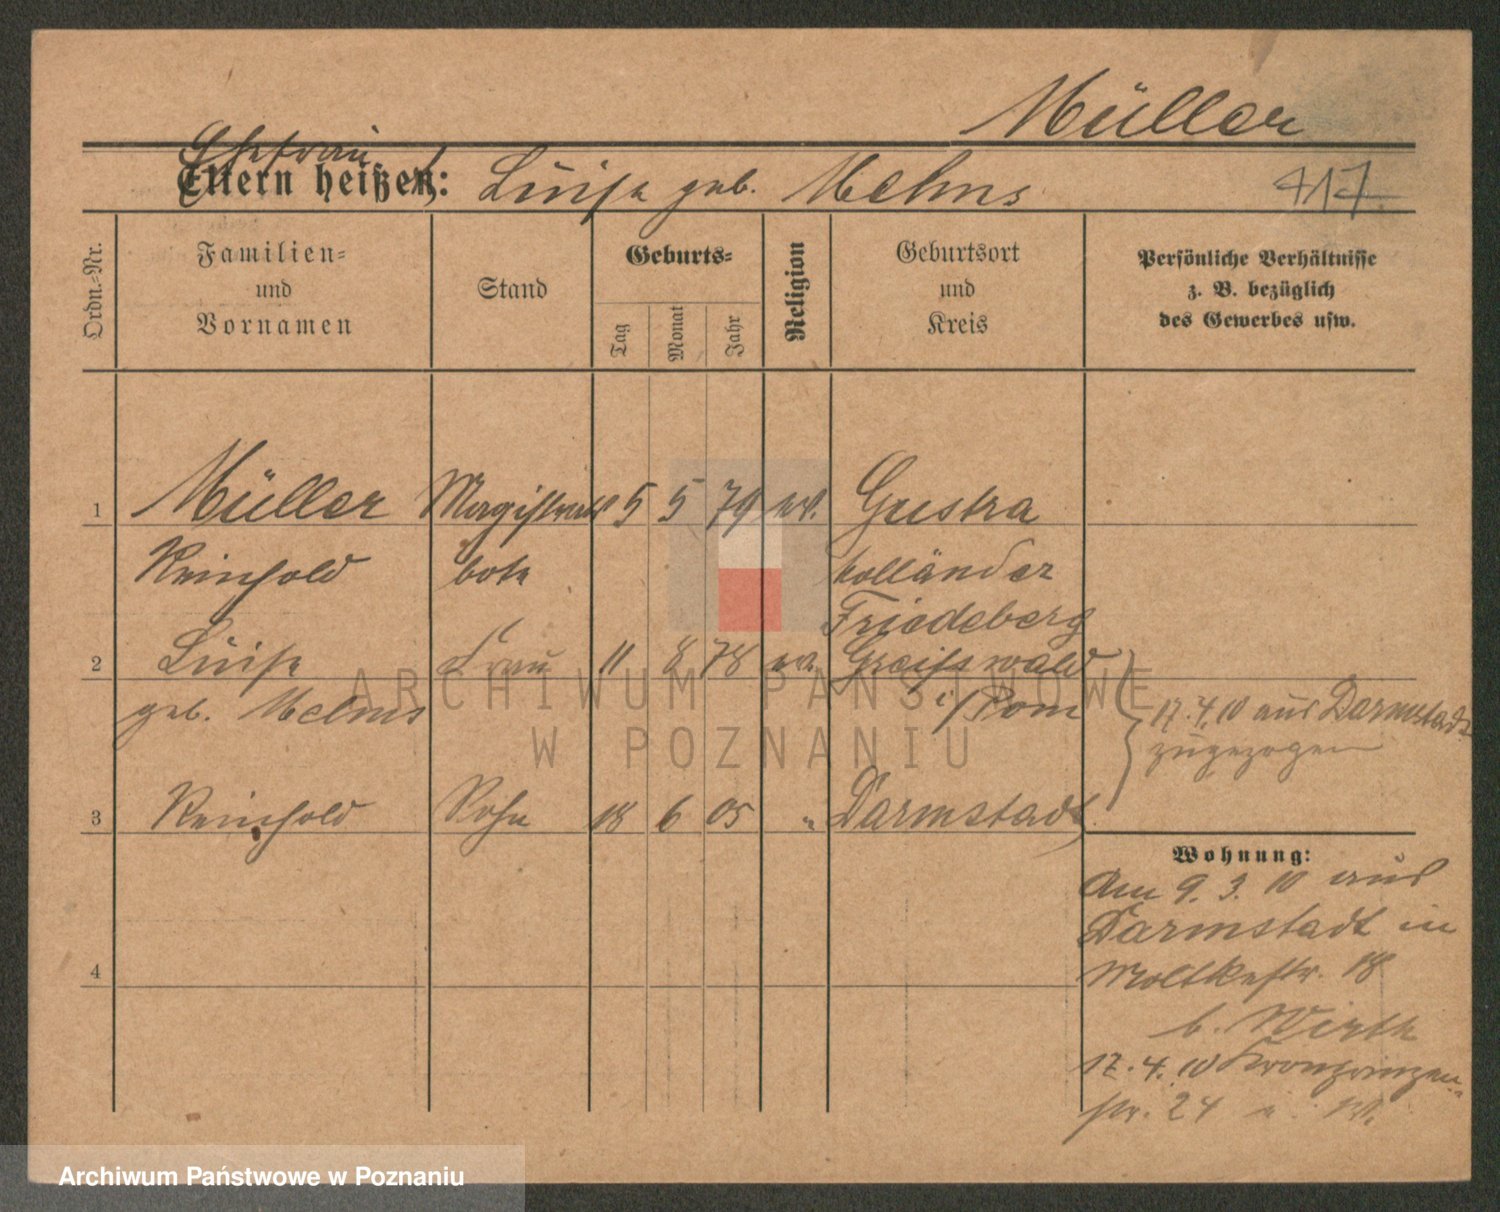 Müller
Ehefrau
Eltern heißen: Luise geb. Melms
417
Ordn.-Nr.
Familien-
und
Vornamen
Stand
Geburts-
Tag
Monat
Jahr
Religion
Geburtsort
und
Kreis
Persönliche Verhältnisse
z. B. bezüglich
des Gewerbes usw.
1 Müller Magistrats 5 5 79 ev. Guskra
Reinhold bote holländer
Friedeberg
2 Luise Frau 11 8 78 ev. Greifswald
geb. Melms i/Pom
17.4.10 aus Darmstadt
zugezogen
3 Reinhold Sohn 18 6 05 " Darmstadt
Wohnung:
Am 9.3.10 aus
Darmstadt in
4
Moltkestr. 18
b. Wirth
17.4.10 Kronprinzen-
str. 24
ARCHIWUM PAŃSTWOWE
W POZNANIU
Archiwum Państwowe w Poznaniu